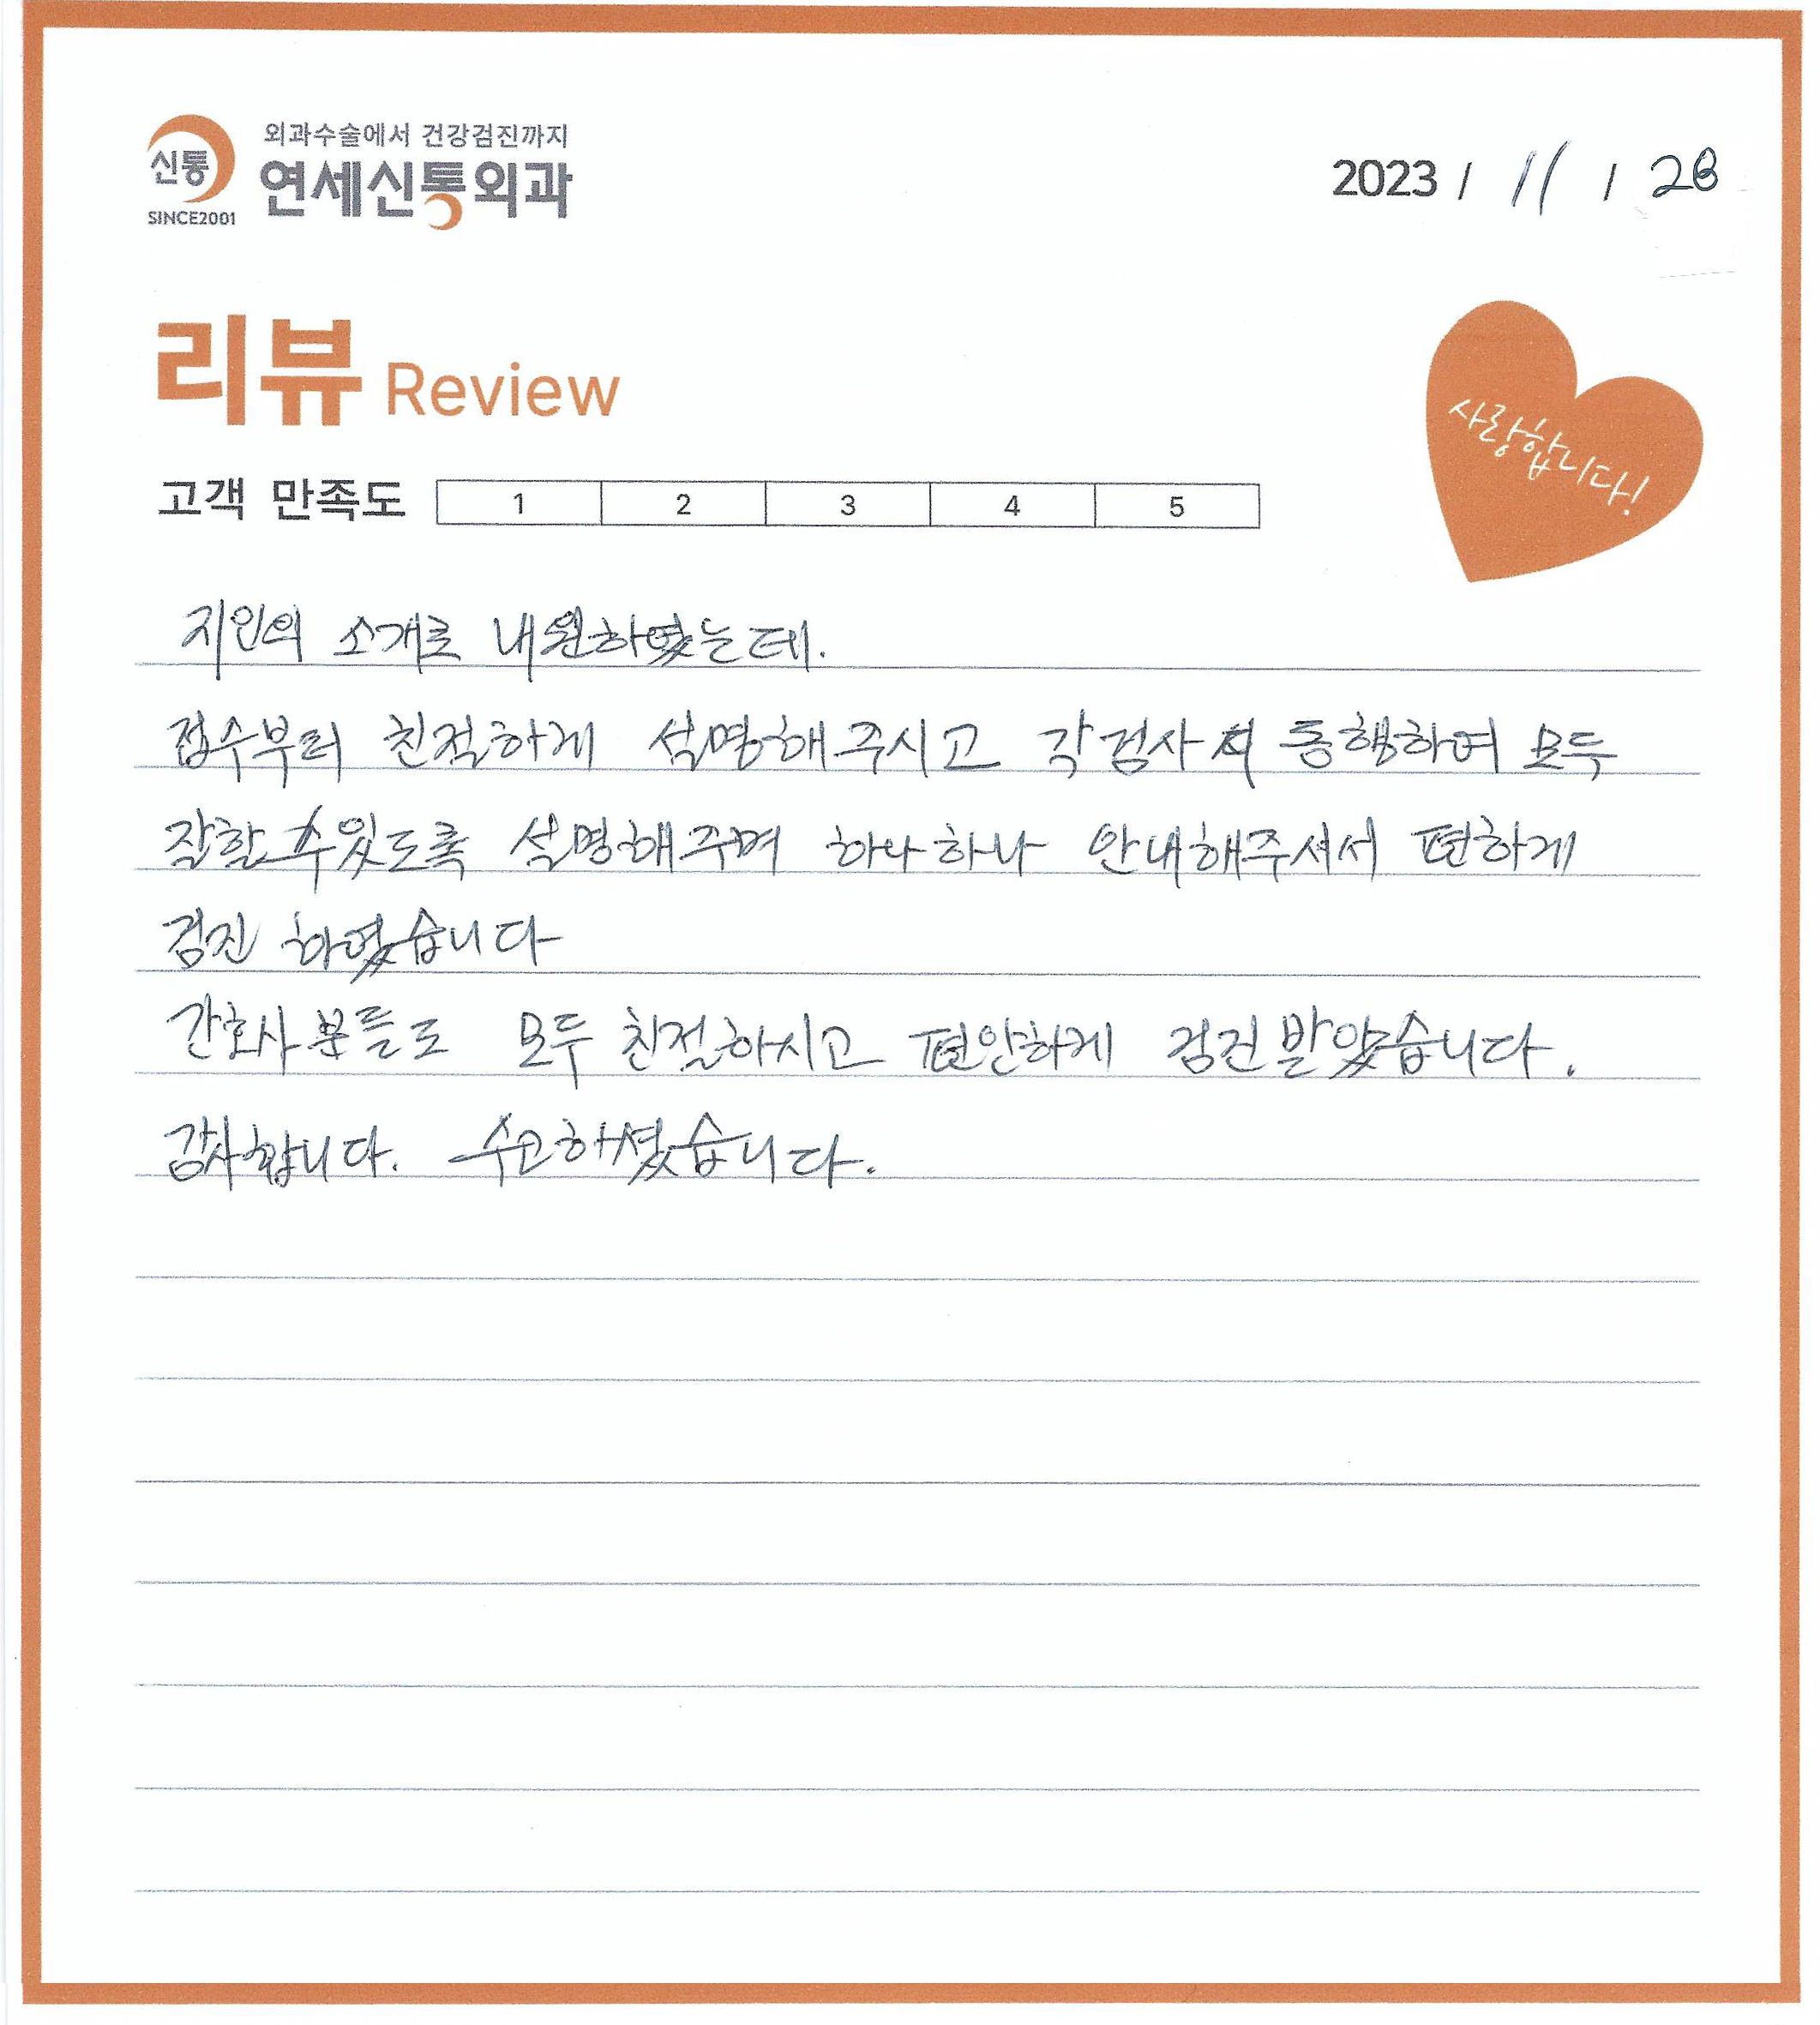 신통
SINCE2001
외과수술에서 건강검진까지
연세신통외과
2023 / 11 / 28
리뷰 Review
사랑합니다!
고객 만족도 1 2 3 4 5
지인의 소개로 내원하였는데.
접수부터 친절하게 설명해주시고 각검사시 동행하여 모두
잘할수있도록 설명해주며 하나하나 안내해주셔서 편하게
검진 하였습니다
간호사분들도 모두 친절하시고 편안하게 검진받았습니다.
감사합니다. 수고하셨습니다.